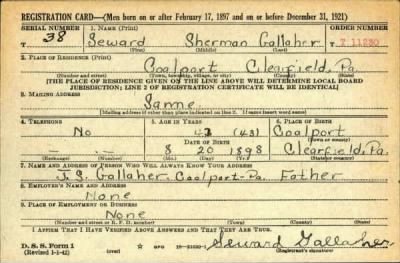 REGISTRATION CARD—(Men born on or after February 17, 1897 and on or before December 31, 1921)
SERIAL NUMBER 1. NAME (Print) ORDER NUMBER
U 38 Seward Sherman Gallaher
(First) (Middle) (Last)
2. PLACE OF RESIDENCE (Print)
Coalport Clearfield, Pa.
(Number and street) (Town, township, village, or city) (County) (State)
[THE PLACE OF RESIDENCE GIVEN ON THE LINE ABOVE WILL DETERMINE LOCAL BOARD
JURISDICTION; LINE 2 OF REGISTRATION CERTIFICATE WILL BE IDENTICAL]
3. MAILING ADDRESS
Same
[Mailing address if other than place indicated on line 2. If same insert word same]
4. TELEPHONE 5. AGE IN YEARS 6. PLACE OF BIRTH
No 43 (43) Coalport
DATE OF BIRTH (Town or county)
8 20 1898 Clearfield, Pa.
(Exchange) (Number) (Mo.) (Day) (Yr.) (State or country)
7. NAME AND ADDRESS OF PERSON WHO WILL ALWAYS KNOW YOUR ADDRESS
J. S. Gallaher, Coalport-Pa. Father
8. EMPLOYER'S NAME AND ADDRESS
None
9. PLACE OF EMPLOYMENT OR BUSINESS
None
(Number and street or R. F. D. number) (Town) (County) (State)
I AFFIRM THAT I HAVE VERIFIED ABOVE ANSWERS AND THAT THEY ARE TRUE.
D. S. S. Form 1
(Revised 1-1-42) (over) GPO Seward Gallaher
(Registrant's signature)